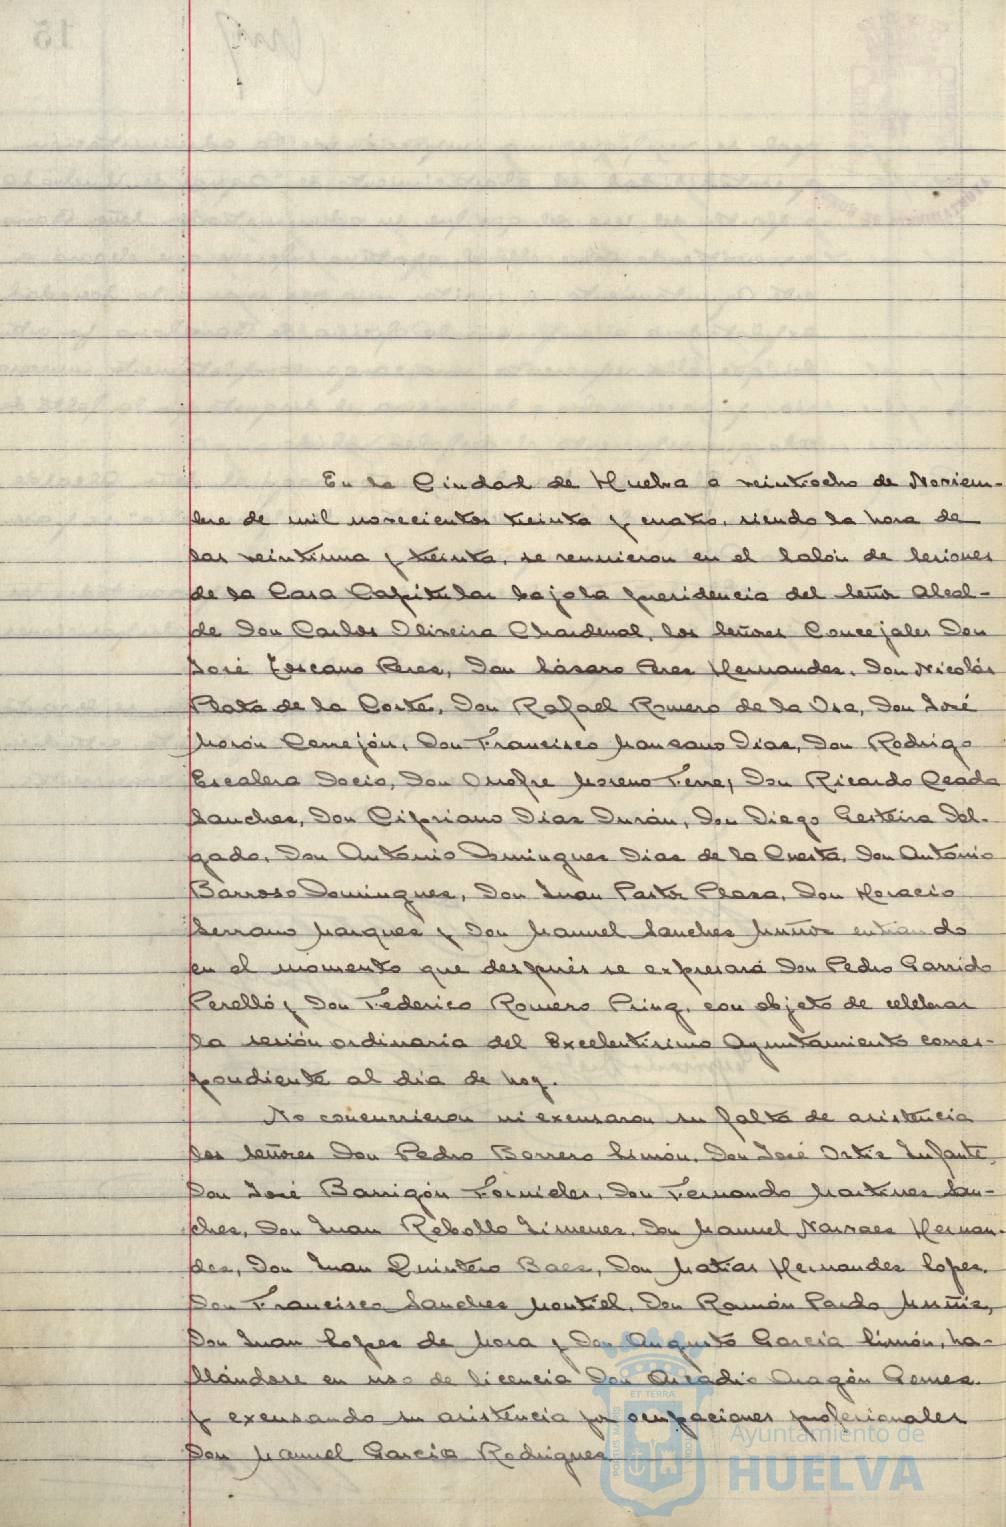 En la Ciudad de Huelva a veintiocho de Noviem-
bre de mil novecientos treinta y cuatro, siendo la hora de
las veintiuna y treinta, se reunieron en el Salón de Sesiones
de la Casa Capitular bajo la presidencia del Señor Alcal-
de Don Carlos Oliveira Chardenal, los Señores Concejales Don
José Toscano Peres, Don Lásaro Peres Hernandes, Don Nicolás
Plata de la Corte, Don Rafael Romero de la Osa, Don José
Morón Cerrejón, Don Francisco Mansano Dias, Don Rodrigo
Escalera Socio, Don Onofre Moreno Ferre, Don Ricardo Ceada
Sanches, Don Cipriano Dias Durán, Don Diego Gesteira Del-
gado, Don Antonio Domingues Dias de la Cuesta, Don Antonio
Barroso Domingues, Don Juan Pastor Plasa, Don Horacio
Serrano Marques y Don Manuel Sanches Muños entrando
en el momento que después se expresará Don Pedro Garrido
Perelló y Don Federico Romero Pring, con objeto de celebrar
la sesión ordinaria del Excelentisimo Ayuntamiento corres-
pondiente al dia de hoy.
No concurrieron ni excusaron su falta de asistencia
los Señores Don Pedro Borrero Limón, Don José Ortiz Infante,
Don José Barrigón Fornieles, Don Fernando Martines San-
ches, Don Juan Rebollo Jimenes, Don Manuel Narvaes Hernan-
des, Don Juan Quintero Baes, Don Matias Hernandes Lopes,
Don Francisco Sanches Montiel, Don Ramón Pardo Muñis,
Don Juan Lopes de Mora y Don Augusto García Limón, ha-
llándose en uso de licencia Don Arcadio Aragón Gomes
y excusando su asistencia por ocupaciones profesionales
Don Manuel Garcia Rodrigues
Ayuntamiento de
HUELVA